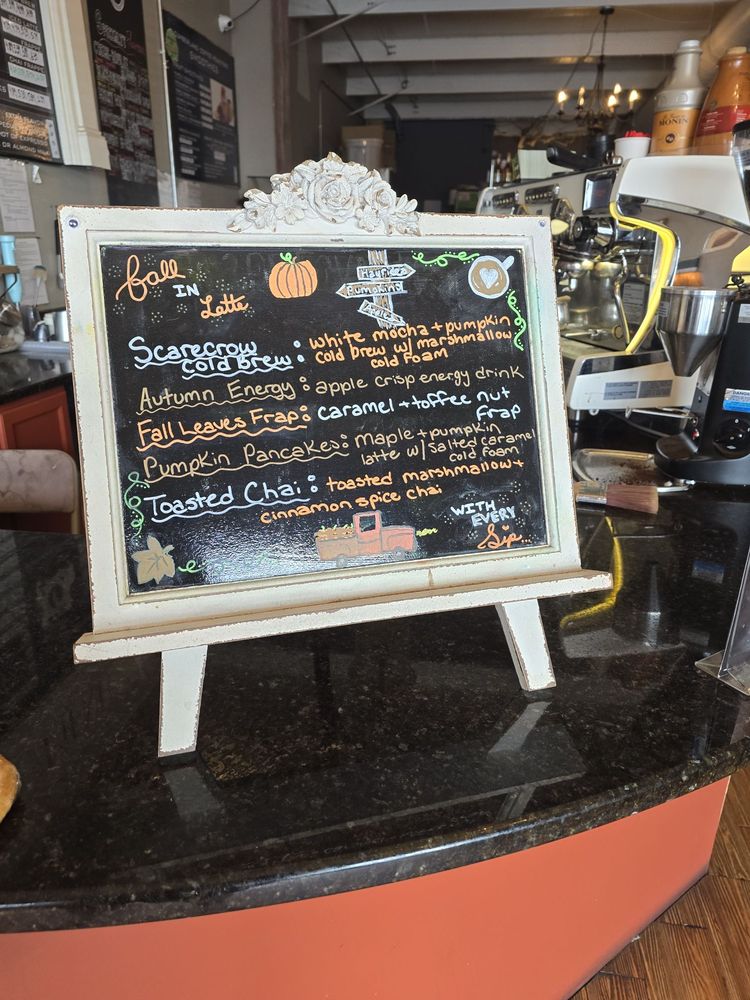 fall
IN
Latte
Hayrides
Pumpkins
Scarecrow
cold Brew : white mocha + pumpkin
cold brew w/ marshmallow
cold foam
Autumn Energy : apple crisp energy drink
Fall Leaves Frap : caramel + toffee nut
frap
Pumpkin Pancakes : Maple + pumpkin
latte w/ salted caramel
cold foam
Toasted Chai : toasted marshmallow +
cinnamon spice chai
WITH
EVERY
Sip...
MONIN
DANGER